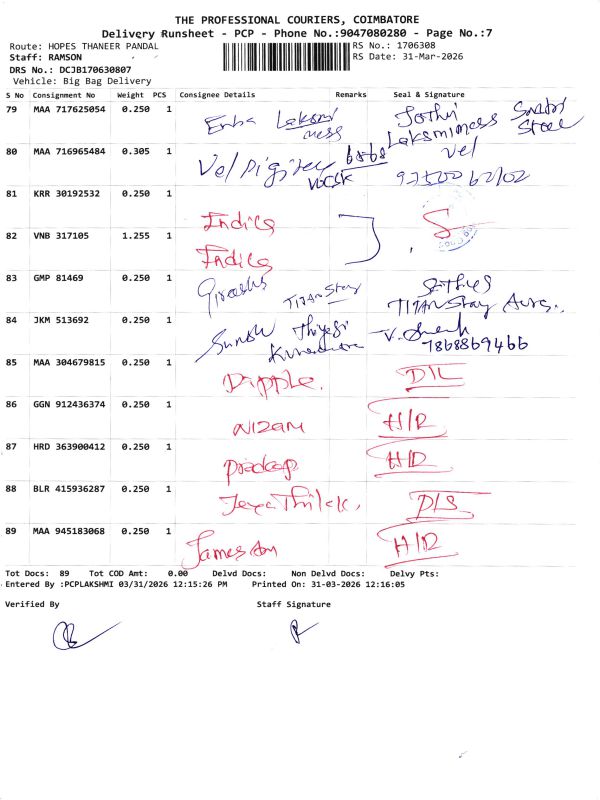 THE PROFESSIONAL COURIERS, COIMBATORE
Delivery Runsheet - PCP - Phone No.:9047080280 - Page No.:7
Route: HOPES THANEER PANDAL RS No.: 1706308
Staff: RAMSON RS Date: 31-Mar-2026
DRS No.: DCJB170630807
Vehicle: Big Bag Delivery
S No Consignment No Weight PCS Consignee Details Remarks Seal & Signature
79 MAA 717625054 0.250 1 Laksmi Jothi
mess Laksmimess
80 MAA 716965484 0.305 1 Vel 6868 Vel
81 KRR 30192532 0.250 1 Indica
82 VNB 317105 1.255 1 Indica
83 GMP 81469 0.250 1 TITAN Stay
TITAN Stay
84 JKM 513692 0.250 1
7868869466
85 MAA 304679815 0.250 1 Dipple. D/L
86 GGN 912436374 0.250 1 NIZAM H/R
87 HRD 363900412 0.250 1 pradeep H/D
88 BLR 415936287 0.250 1 JeyaThilak. D/S
89 MAA 945183068 0.250 1 James H/R
Tot Docs: 89 Tot COD Amt: 0.00 Delvd Docs: Non Delvd Docs: Delvy Pts:
Entered By :PCPLAKSHMI 03/31/2026 12:15:26 PM Printed On: 31-03-2026 12:16:05
Verified By Staff Signature